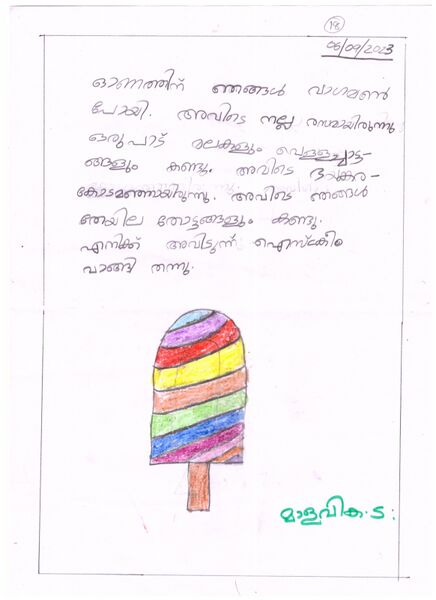 18
06/09/2023
ഓണത്തിന് ഞങ്ങൾ വാഗമൺ
പോയി. അവിടെ നല്ല രസമായിരുന്നു
ഒരുപാട് മലകളും വെള്ളച്ചാട്ട-
ങ്ങളും കണ്ടു. അവിടെ ഭയങ്കര-
കോടമഞ്ഞായിരുന്നു. അവിടെ ഞങ്ങൾ
തേയില തോട്ടങ്ങളും കണ്ടു.
എനിക്ക് അവിടുന്ന് ഐസ്ക്രീം
വാങ്ങി തന്നു.
മാളവിക.ട: